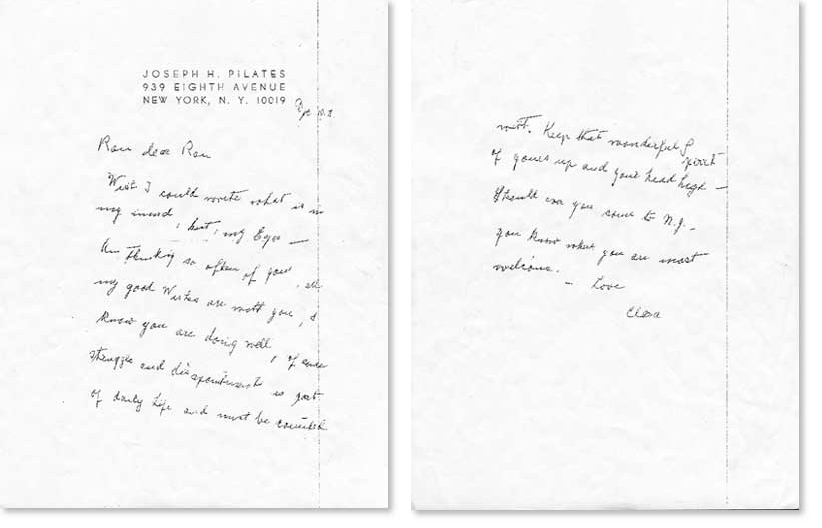 JOSEPH H. PILATES
939 EIGHTH AVENUE
NEW YORK, N. Y. 10019
Ron dear Ron
Wist I could write what is in
my mind, but, my Eyes —
Am thinking so often of you, all
my good Wishes are with you, I
know you are doing well, of course
struggle and disapointment is part
of daily life and must be counted
with. Keep that wonderful spirit
of yours up and your head high —
Should ever you come to N.Y. —
you know that you are most
welcome.
— Love
Clara